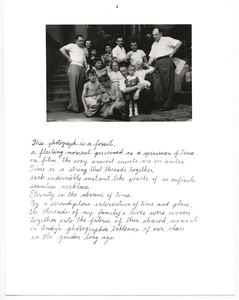 This photograph is a fossil,
a fleeting moment preserved as a specimen of time
on film, the way ancient insects are in amber.
Time is a string that threads together
each indivisible instant like pearls of an infinite
seamless necklace.
Eternity is the absence of time.
By a serendipitous intersection of time and place,
the threads of my family's lives were woven
together into the fabric of this shared moment
in Andy's photographic tableaux of our clan
in the garden long ago.